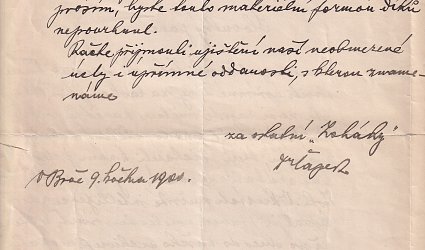 prosím, byste touto materielní formou díků
nepovrhnul.
Račte přijmouti ujištění naší neobmezené
úcty i upřímné oddanosti, s kterou zname-
náme
za ostatní „Koháky"
v Brně 9. května